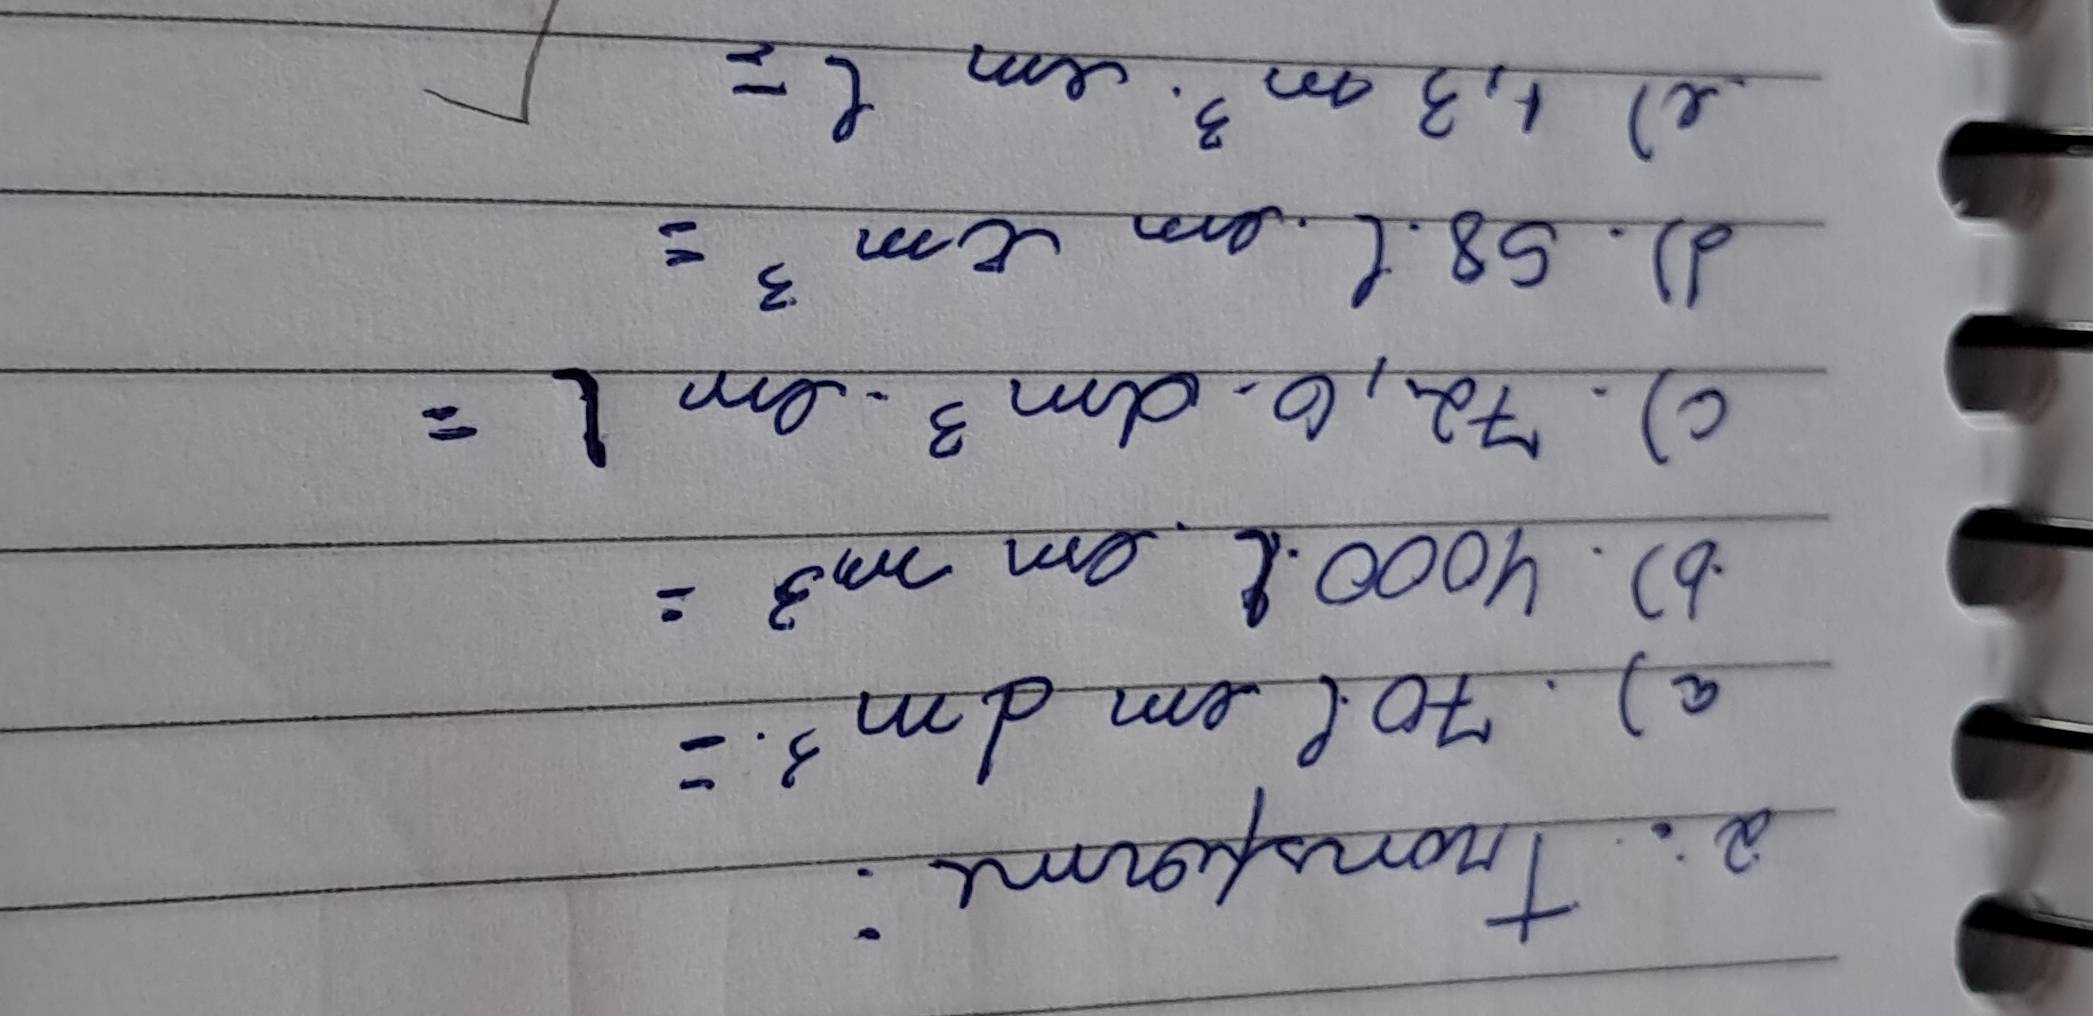 2. Transforme:
a) 70 l em dm³ =
b) 4000 l em m³ =
c) 72,6 dm³ em l =
d) 58 l em cm³ =
e) 1,3 m³ em l =